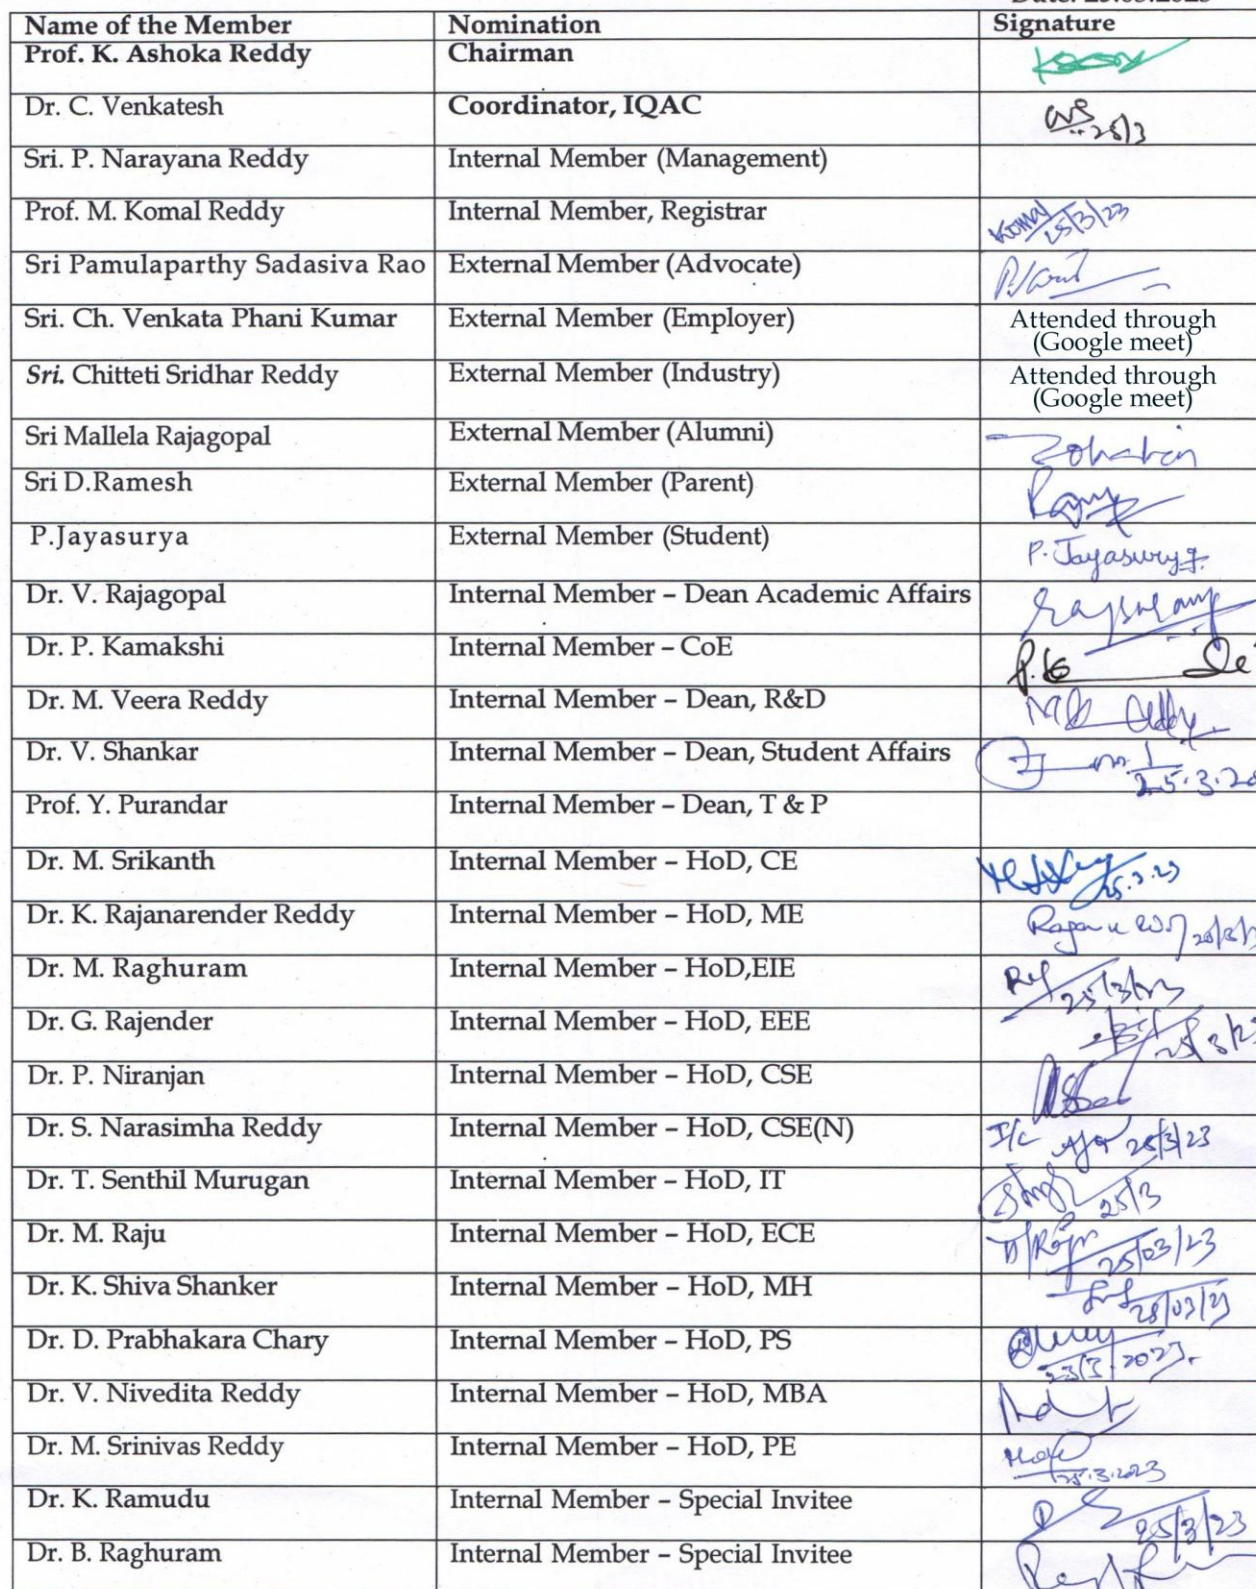 Name of the Member Nomination Signature
Prof. K. Ashoka Reddy Chairman
Dr. C. Venkatesh Coordinator, IQAC 25/3
Sri. P. Narayana Reddy Internal Member (Management)
Prof. M. Komal Reddy Internal Member, Registrar Komal 25/3/23
Sri Pamulaparthy Sadasiva Rao External Member (Advocate)
Sri. Ch. Venkata Phani Kumar External Member (Employer) Attended through
(Google meet)
Sri. Chitteti Sridhar Reddy External Member (Industry) Attended through
(Google meet)
Sri Mallela Rajagopal External Member (Alumni)
Sri D.Ramesh External Member (Parent)
P.Jayasurya External Member (Student) P. Jayasurya
Dr. V. Rajagopal Internal Member – Dean Academic Affairs
Dr. P. Kamakshi Internal Member – CoE
Dr. M. Veera Reddy Internal Member – Dean, R&D
Dr. V. Shankar Internal Member – Dean, Student Affairs 25.3.20
Prof. Y. Purandar Internal Member – Dean, T & P
Dr. M. Srikanth Internal Member – HoD, CE 25.3.23
Dr. K. Rajanarender Reddy Internal Member – HoD, ME
Dr. M. Raghuram Internal Member – HoD,EIE 25/3/23
Dr. G. Rajender Internal Member – HoD, EEE 25/3/23
Dr. P. Niranjan Internal Member – HoD, CSE
Dr. S. Narasimha Reddy Internal Member – HoD, CSE(N) I/c 25/3/23
Dr. T. Senthil Murugan Internal Member – HoD, IT 25/3
Dr. M. Raju Internal Member – HoD, ECE 25/03/23
Dr. K. Shiva Shanker Internal Member – HoD, MH
Dr. D. Prabhakara Chary Internal Member – HoD, PS
Dr. V. Nivedita Reddy Internal Member – HoD, MBA
Dr. M. Srinivas Reddy Internal Member – HoD, PE 25.3.2023
Dr. K. Ramudu Internal Member – Special Invitee 25/3/23
Dr. B. Raghuram Internal Member – Special Invitee